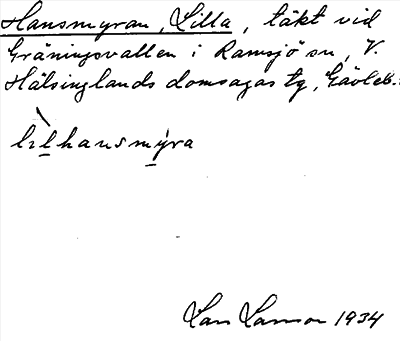 Hansmyran, Lilla, täkt vid
Gräningsvallen i Ramsjö sn, V.
Hälsinglands domsagas tg, Gävleb.
lɩlhansmýra
Lars Larsson 1934